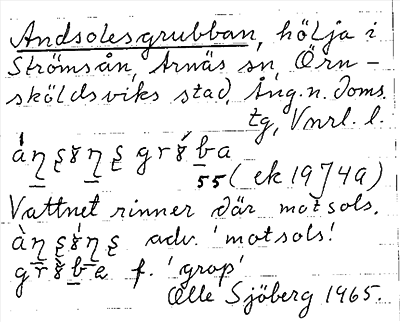 Andsolesgrubban, hölja i
Strömsån, Arnäs sn, Örn-
sköldsviks stad, Ång. n. doms.
tg, Vnrl. l.
55 (ek 1974a)
Vattnet rinner där motsols.
adv. 'motsols'.
f. 'grop'
Olle Sjöberg 1965.